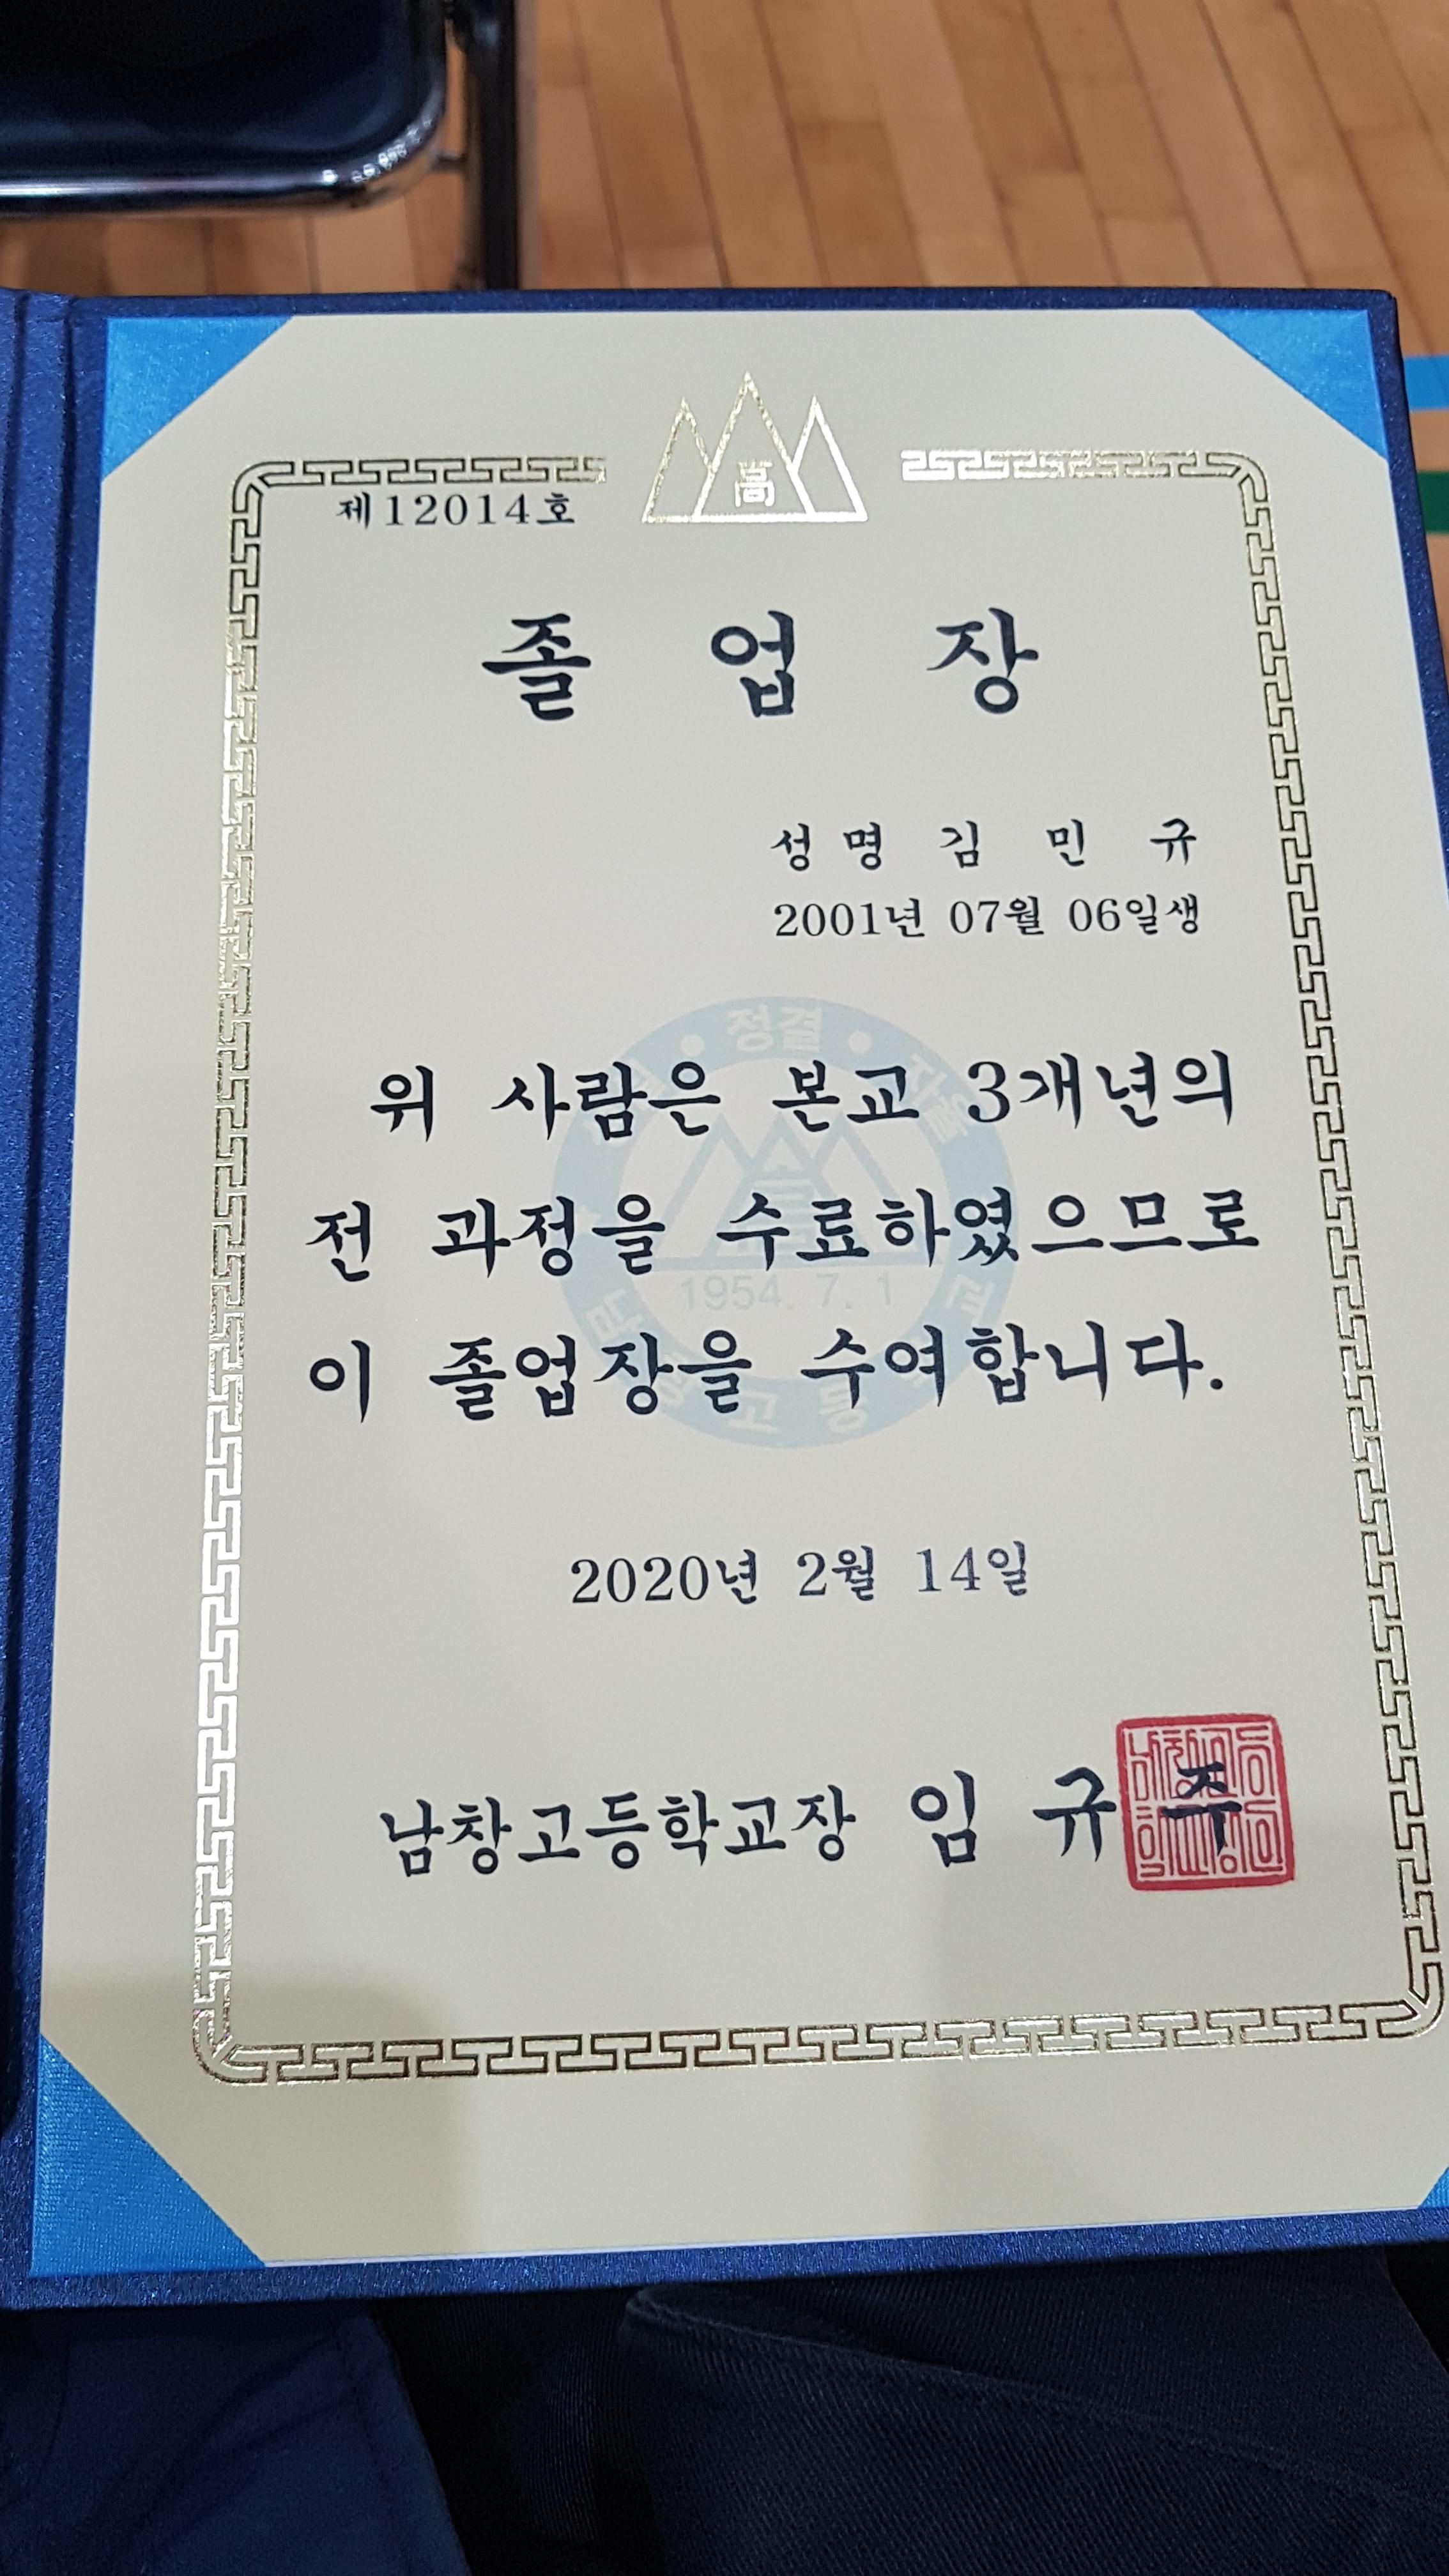 高
제12014호
졸 업 장
성 명 김 민 규
2001년 07월 06일생
정결
위 사람은 본교 3개년의
전 과정을 수료하였으므로
1954. 7. 1
이 졸업장을 수여합니다.
2020년 2월 14일
남창고등학교장 임 규 주